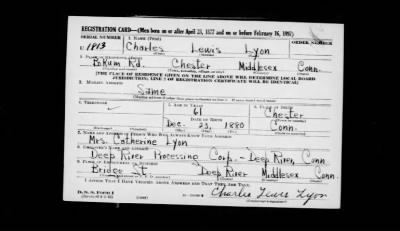 REGISTRATION CARD—(Men born on or after April 28, 1877 and on or before February 16, 1897)
SERIAL NUMBER 1. NAME (Print) ORDER NUMBER
U 1813 Charles Lewis Lyon
2. PLACE OF RESIDENCE (Print)
Rd. Chester Middlesex Conn.
[THE PLACE OF RESIDENCE GIVEN ON THE LINE ABOVE WILL DETERMINE LOCAL BOARD
JURISDICTION; LINE 2 OF REGISTRATION CERTIFICATE WILL BE IDENTICAL]
3. MAILING ADDRESS
Same
4. TELEPHONE 5. AGE IN YEARS 6. PLACE OF BIRTH
61 Chester
DATE OF BIRTH
Dec. 23, 1880 Conn.
7. NAME AND ADDRESS OF PERSON WHO WILL ALWAYS KNOW YOUR ADDRESS
Mrs. Catherine Lyon
8. EMPLOYER'S NAME AND ADDRESS
Deep River Processing Corp. - Deep River, Conn
9. PLACE OF EMPLOYMENT OR BUSINESS
Bridge St. Deep River Middlesex Conn.
I AFFIRM THAT I HAVE VERIFIED ABOVE ANSWERS AND THAT THEY ARE TRUE.
D. S. S. Form 1
Charles Lewis Lyon